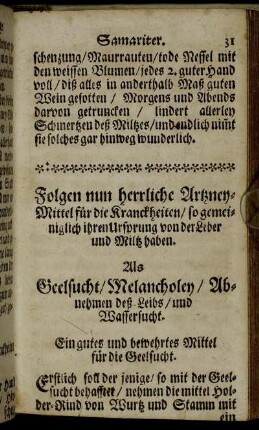 Samariter. 31
schenzung/Maurrauten/tode Nessel mit
den weissen Blumen/jedes 2. guter Hand
voll/diß alles in anderthalb Maß guten
Wein gesotten/ Morgens und Abends
darvon getruncken/ lindert allerley
Schmertzen deß Miltzes/und endlich nim̃t
sie solches gar hinweg wunderlich.
Folgen nun herrliche Artzney-
Mittel für die Kranckheiten/so gemei-
niglich ihren Ursprung von der Leber
und Miltz haben.
Als
Geelsucht/Melancholey/Ab-
nehmen deß Leibs/und
Wassersucht.
Ein gutes und bewehrtes Mittel
für die Geelsucht.
Erstlich soll der jenige/so mit der Geel-
sucht behafftet/nehmen die mittel Hol-
der-Rind von Wurtz und Stamm mit
ein